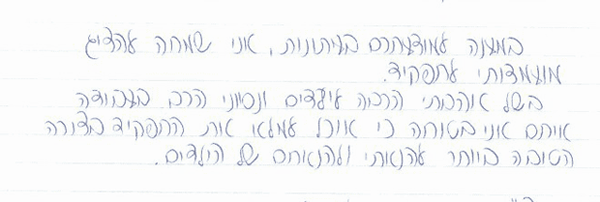 במענה למודעתכם בעיתונות, אני שמחה להציג
מועמדותי לתפקיד.
בשל אהבתי הרבה לילדים ונסיוני הרב בעבודה
איתם אני בטוחה כי אוכל למלא את התפקיד בצורה
הטובה ביותר להנאתי ולהנאתם של הילדים.